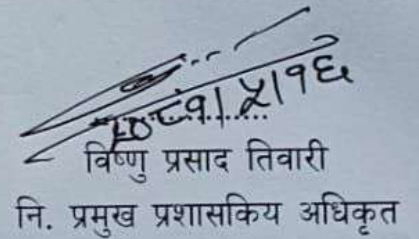 २०८१।५।१६
विष्णु प्रसाद तिवारी
नि. प्रमुख प्रशासकिय अधिकृत